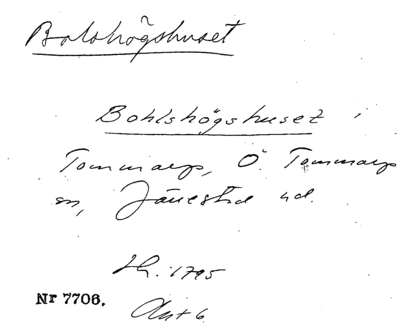 Bolshögshuset
Bohlshögshuset i
Tommarp, Ö. Tommarp
sn, Järrestad hd.
Jb. 1795
Nr 7706.
Akt 6